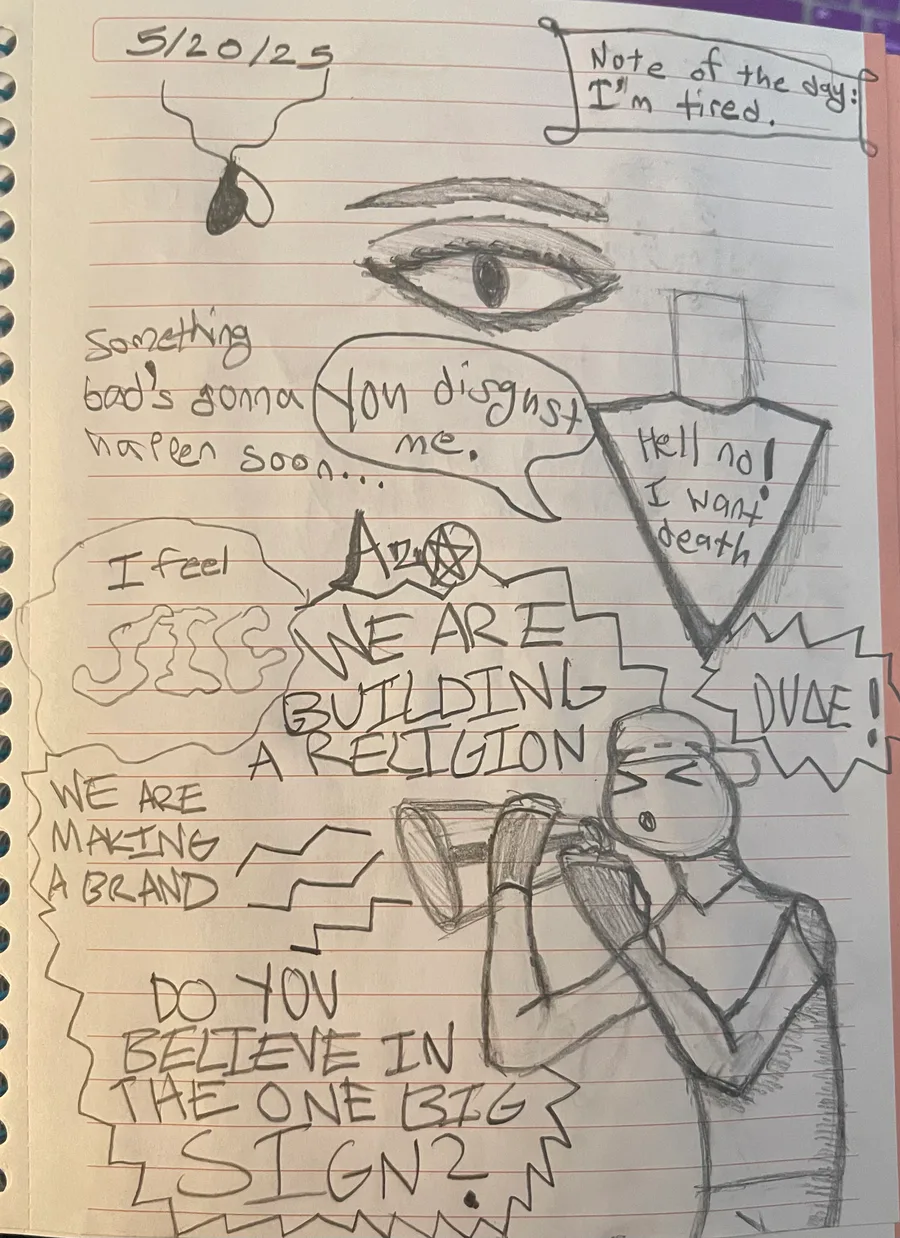 5/20/25
Note of the day:
I'm tired.
Something
bad's gonna
happen soon...
You disgust
me.
Hell no!
I want
death
I feel
SICC
WE ARE
BUILDING
A RELIGION
DUDE!
WE ARE
MAKING
A BRAND
DO YOU
BELIEVE IN
THE ONE BIG
SIGN?